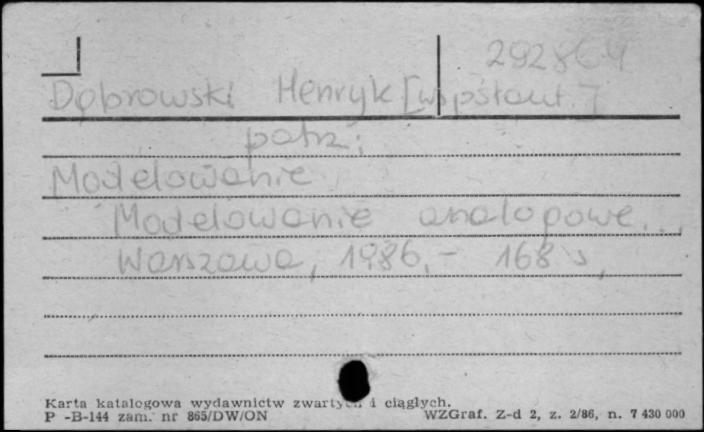 292864
Dąbrowski Henryk [współaut.]
patrz:
Modelowanie
Modelowanie analogowe...
Warszawa, 1986.- 168 s.
Karta katalogowa wydawnictw zwartych i ciągłych.
P -B-144 zam. nr 865/DW/ON WZGraf. Z-d 2, z. 2/86, n. 7 430 000